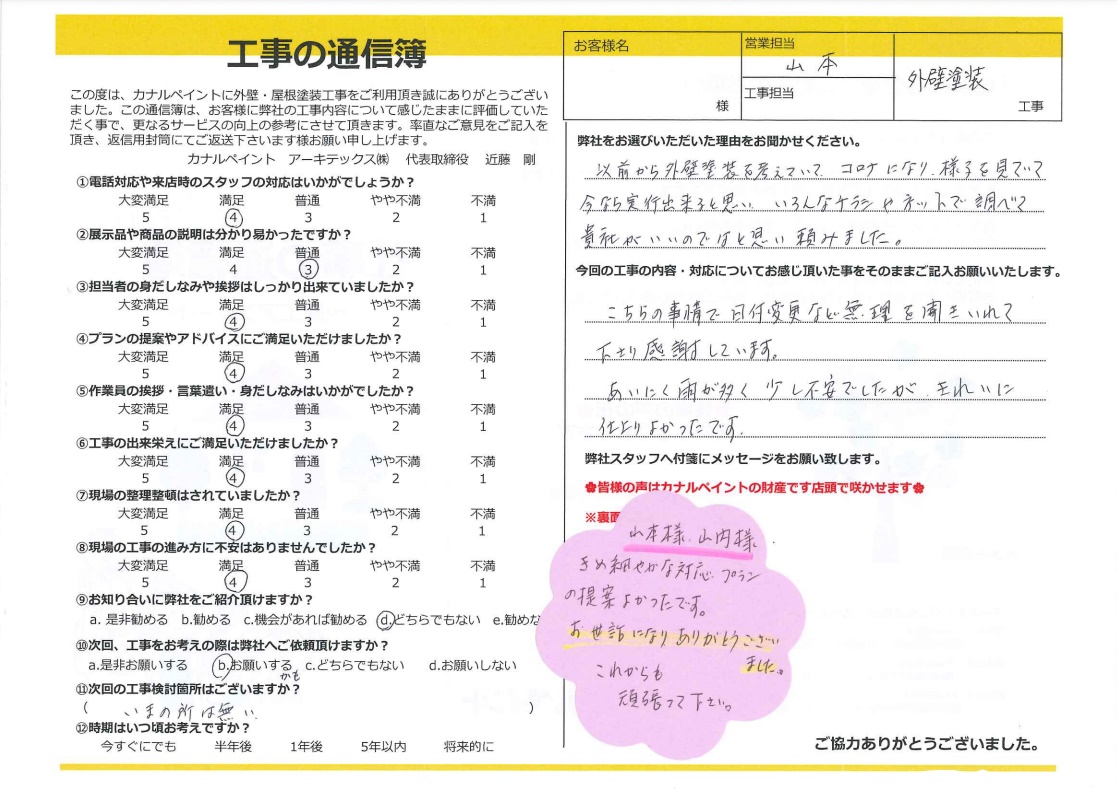 工事の通信簿
この度は、カナルペイントに外壁・屋根塗装工事をご利用頂き誠にありがとうござい
ました。この通信簿は、お客様に弊社の工事内容について感じたままに評価していた
だく事で、更なるサービスの向上の参考にさせて頂きます。率直なご意見をご記入を
頂き、返信用封筒にてご返送下さいます様お願い申し上げます。
カナルペイント アーキテックス㈱ 代表取締役 近藤 剛
①電話対応や来店時のスタッフの対応はいかがでしょうか？
大変満足 満足 普通 やや不満 不満
5 4 3 2 1
②展示品や商品の説明は分かり易かったですか？
大変満足 満足 普通 やや不満 不満
5 4 3 2 1
③担当者の身だしなみや挨拶はしっかり出来ていましたか？
大変満足 満足 普通 やや不満 不満
5 4 3 2 1
④プランの提案やアドバイスにご満足いただけましたか？
大変満足 満足 普通 やや不満 不満
5 4 3 2 1
⑤作業員の挨拶・言葉遣い・身だしなみはいかがでしたか？
大変満足 満足 普通 やや不満 不満
5 4 3 2 1
⑥工事の出来栄えにご満足いただけましたか？
大変満足 満足 普通 やや不満 不満
5 4 3 2 1
⑦現場の整理整頓はされていましたか？
大変満足 満足 普通 やや不満 不満
5 4 3 2 1
⑧現場の工事の進み方に不安はありませんでしたか？
大変満足 満足 普通 やや不満 不満
5 4 3 2 1
⑨お知り合いに弊社をご紹介頂けますか？
a. 是非勧める b.勧める c.機会があれば勧める d.どちらでもない e.勧めな
⑩次回、工事をお考えの際は弊社へご依頼頂けますか？
a.是非お願いする b.お願いする c.どちらでもない d.お願いしない
かも
⑪次回の工事検討箇所はございますか？
( いまの所は無い )
⑫時期はいつ頃お考えですか？
今すぐにでも 半年後 1年後 5年以内 将来的に
お客様名
様
営業担当
山本
工事担当
外壁塗装
工事
弊社をお選びいただいた理由をお聞かせください。
以前から外壁塗装を考えていて コロナになり、様子を見ていて
今なら実行出来ると思い いろんなチラシやネットで調べて
貴社がいいのではと思い頼みました。
今回の工事の内容・対応についてお感じ頂いた事をそのままご記入お願いいたします。
こちらの事情で日付変更など無理を聞きいれて
下さり感謝しています。
あいにく雨が多く少し不安でしたが、きれいに
仕上りよかったです。
弊社スタッフへ付箋にメッセージをお願い致します。
✿皆様の声はカナルペイントの財産です店頭で咲かせます✿
※裏面
山本様、山内様
きめ細やかな対応、プラン
の提案よかったです。
お世話になりありがとうござい
ました。
これからも
頑張って下さい。
ご協力ありがとうございました。